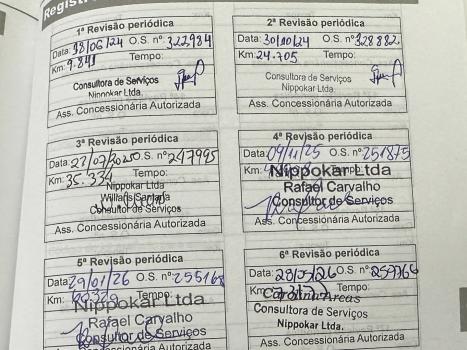 Registr
1ª Revisão periódica
Data: 18/06/24 O.S. nº 322984
Km: 9.841 Tempo:
Consultora de Serviços
Nippokar Ltda.
Ass. Concessionária Autorizada
2ª Revisão periódica
Data: 30/10/24 O.S. nº 328882
Km: 24.705 Tempo:
Consultora de Serviços
Nippokar Ltda.
Ass. Concessionária Autorizada
3ª Revisão periódica
Data: O.S. nº 247995
Km: 35.334 Tempo:
Nippokar Ltda
Willians Santana
Consultor de Serviços
Ass. Concessionária Autorizada
4ª Revisão periódica
Data: 04/11/25 O.S. nº 251875
Km: Tempo:
Nippokar Ltda
Rafael Carvalho
Consultor de Serviços
Ass. Concessionária Autorizada
5ª Revisão periódica
Data: 29/01/26 O.S. nº 255168
Km: Tempo:
Nippokar Ltda
Rafael Carvalho
Consultor de Serviços
Ass. Concessionária Autorizada
6ª Revisão periódica
Data: 28/05/26 O.S. nº 259766
Km: Tempo:
Carolina Arcas
Consultora de Serviços
Nippokar Ltda.
Ass. Concessionária Autorizada